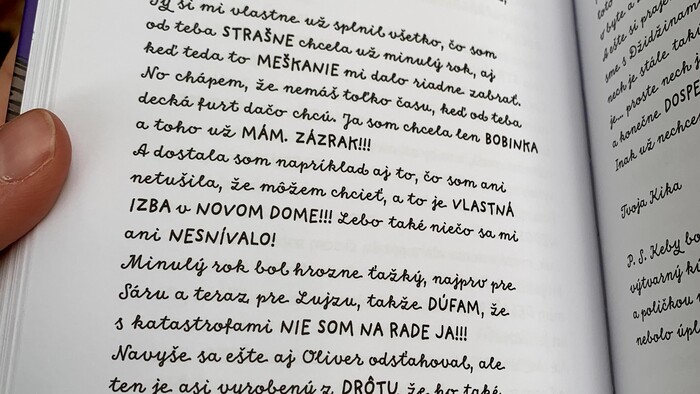 Ty si mi vlastne už splnil všetko, čo som
od teba STRAŠNE chcela už minulý rok, aj
keď teda to MEŠKANIE mi dalo riadne zabrať.
No chápem, že nemáš toľko času, keď od teba
decká furt dačo chcú. Ja som chcela len BOBINKA
a toho už MÁM. ZÁZRAK!!!
A dostala som napríklad aj to, čo som ani
netušila, že môžem chcieť, a to je VLASTNÁ
IZBA v NOVOM DOME!!! Lebo také niečo sa mi
ani NESNÍVALO!
Minulý rok bol hrozne ťažký, najprv pre
Sáru a teraz pre Lujzu, takže DÚFAM, že
s katastrofami NIE SOM NA RADE JA!!!
Navyše sa ešte aj Oliver odsťahoval, ale
ten je asi vyrobený z DRÔTU, že ho také
a ešte si
sme s Džidžinam
nech je stále
je... proste nech j
a konečne DOSPE
Inak už nechce
Tvoja Kika
P. S. Keby bo
výtvarný
a poličkou
nebolo úpl